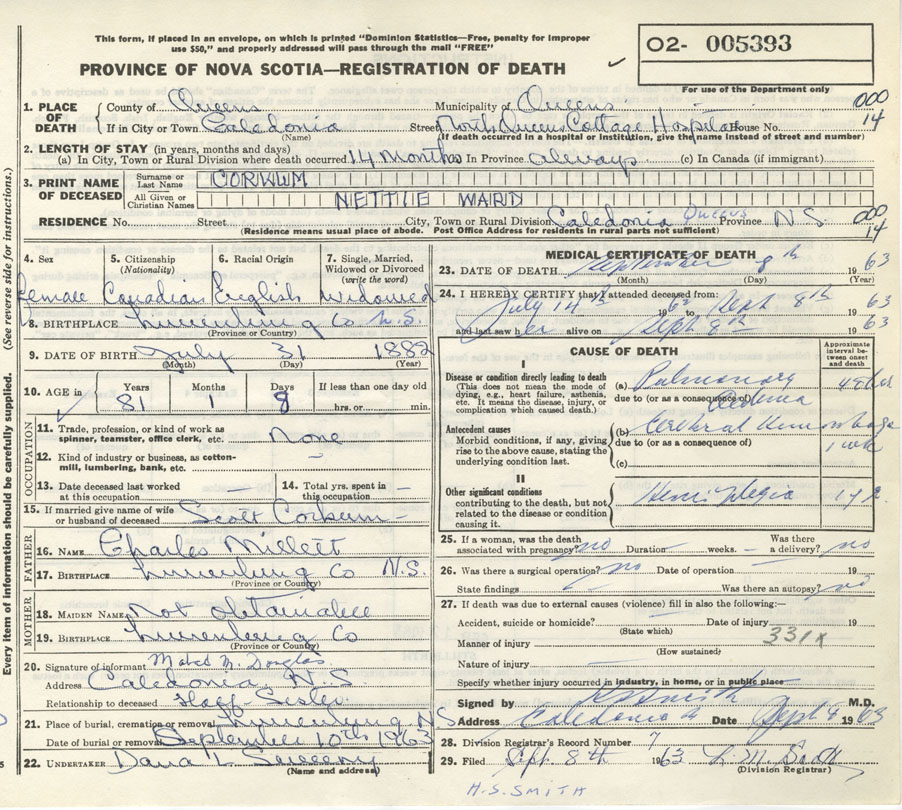 This form, if placed in an envelope, on which is printed "Dominion Statistics—Free, penalty for improper
use $50," and properly addressed will pass through the mail "FREE"
02- 005393
PROVINCE OF NOVA SCOTIA—REGISTRATION OF DEATH
For use of the Department only
1. PLACE OF DEATH County of Queens Municipality of Queens 000
If in City or Town Caledonia Street North Queens Cottage Hospital House No. 14
(Name) (If death occurred in a hospital or institution, give the name instead of street and number)
2. LENGTH OF STAY (in years, months and days)
(a) In City, Town or Rural Division where death occurred 14 Months (b) In Province always (c) In Canada (if immigrant)
3. PRINT NAME OF DECEASED Surname or Last Name CORKUM
All Given or Christian Names NETTIE WARD
RESIDENCE No. Street City, Town or Rural Division Caledonia Queens Province N S 000 14
(Residence means usual place of abode. Post Office Address for residents in rural parts not sufficient)
(See reverse side for instructions.)
Every item of information should be carefully supplied.
4. Sex 5. Citizenship (Nationality) 6. Racial Origin 7. Single, Married, Widowed or Divorced (write the word)
Female Canadian English Widowed
8. BIRTHPLACE Lunenburg Co N.S.
(Province or Country)
9. DATE OF BIRTH July 31 1882
(Month) (Day) (Year)
10. AGE in Years Months Days If less than one day old
81 1 8 hrs. or min.
OCCUPATION
11. Trade, profession, or kind of work as spinner, teamster, office clerk, etc. None
12. Kind of industry or business, as cotton-mill, lumbering, bank, etc. –
13. Date deceased last worked at this occupation — 14. Total yrs. spent in this occupation —
15. If married give name of wife or husband of deceased Scott Corkum
FATHER
16. NAME Charles Millett
17. BIRTHPLACE Lunenburg Co N.S.
(Province or Country)
MOTHER
18. MAIDEN NAME Not obtainable
19. BIRTHPLACE Lunenburg Co
(Province or Country)
20. Signature of informant Mabel M. Douglas
Address Caledonia N.S.
Relationship to deceased Half Sister
21. Place of burial, cremation or removal Lunenburg N S
Date of burial or removal September 10th 1963
22. UNDERTAKER Dana L Sweeny
(Name and address)
MEDICAL CERTIFICATE OF DEATH
23. DATE OF DEATH September 8th 1963
(Month) (Day) (Year)
24. I HEREBY CERTIFY that I attended deceased from:
July 14th 1962 to Sept 8th 1963
and last saw her alive on Sept 8th 1963
CAUSE OF DEATH
Approximate interval between onset and death
I
Disease or condition directly leading to death (a) Pulmonary 48 hrs
(This does not mean the mode of dying, e.g., heart failure, asthenia, etc. It means the disease, injury, or complication which caused death.)
due to (or as a consequence of) Oedema
Antecedent causes (b) Cerebral Hemorrhage
Morbid conditions, if any, giving rise to the above cause, stating the underlying condition last.
due to (or as a consequence of) 1 wk
(c)
II
Other significant conditions Hemiplegia 1 yr.
contributing to the death, but not related to the disease or condition causing it.
25. If a woman, was the death associated with pregnancy? no Duration weeks. — Was there a delivery? no
26. Was there a surgical operation? no Date of operation 19
State findings Was there an autopsy? no
27. If death was due to external causes (violence) fill in also the following:—
Accident, suicide or homicide? Date of injury 19
(State which)
331X
Manner of injury
(How sustained)
Nature of injury
Specify whether injury occurred in industry, in home, or in public place
Signed by Smith M.D.
Address Caledonia Date Sept 8 1963
28. Division Registrar's Record Number 7
29. Filed Sept. 8th 1963 Smith
(Division Registrar)
H.S. SMITH